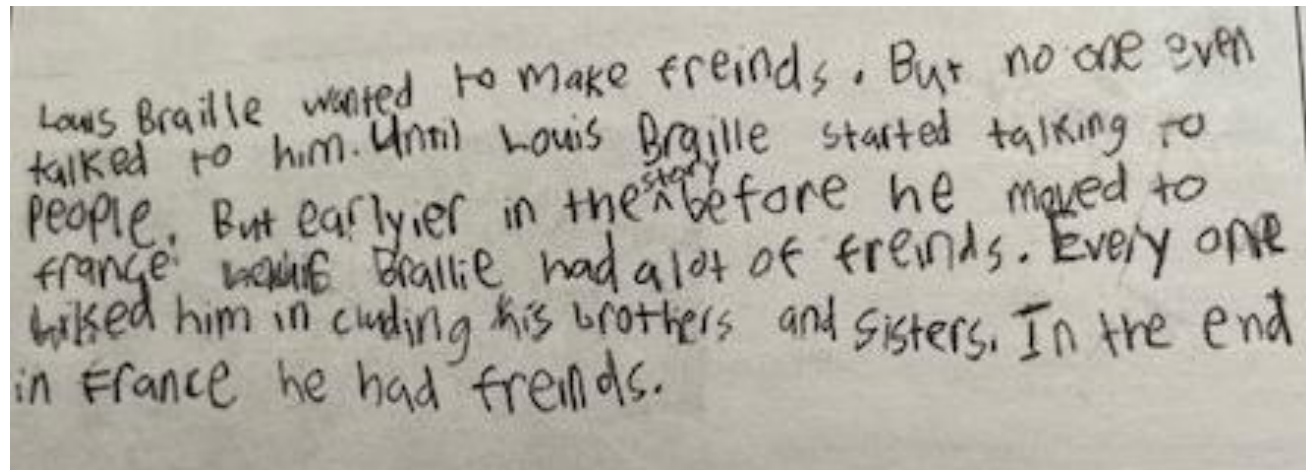 Louis Braille wanted to make freinds. But no one even
talked to him. Until Louis Braille started talking to
People. But earlyier in the story before he moved to
france Braillie had a lot of freinds. Every one
liked him in cluding his brothers and sisters. In the end
in France he had freinds.